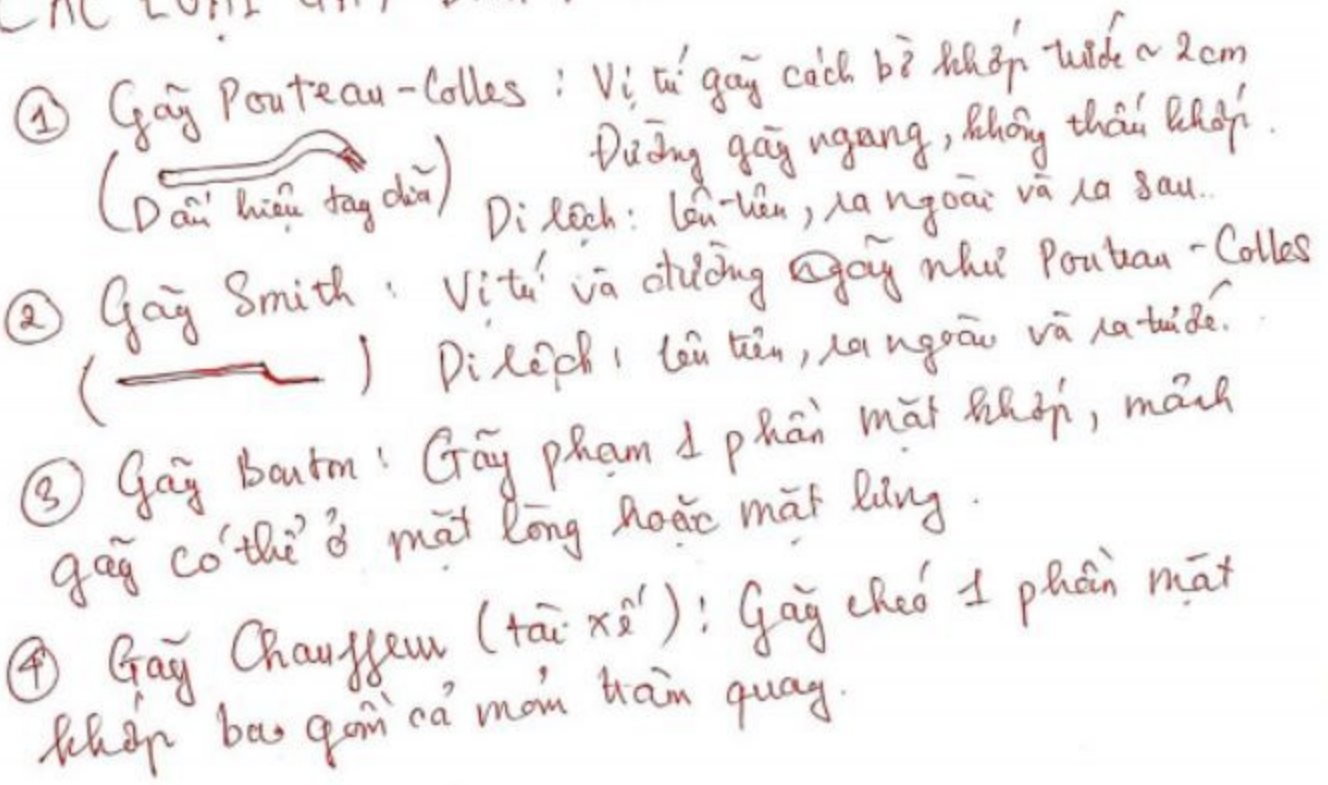 CÁC LOẠI GÃY
① Gãy Pouteau-Colles : Vị trí gãy cách bờ khớp trước ~ 2cm
Đường gãy ngang, không thấu khớp.
(Dấu hiệu tay dĩa) Di lệch: lên-trên, ra ngoài và ra sau..
② Gãy Smith : Vị trí và đường gãy như Pouteau - Colles
( ) Di lệch : lên trên, ra ngoài và ra trước.
③ Gãy Barton : Gãy phạm 1 phần mặt khớp, mảnh
gãy có thể ở mặt lòng hoặc mặt lưng.
④ Gãy Chauffeur (tài xế) : Gãy chéo 1 phần mặt
khớp bao gồm cả mỏm trâm quay.